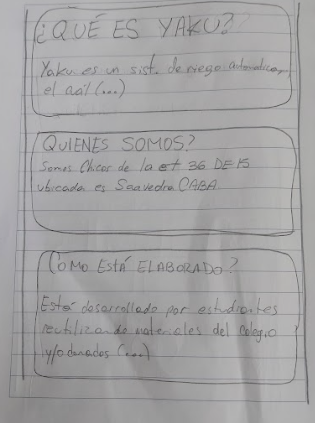 ¿QUÉ ES YAKU?
Yaku es un sist. de riego automatico,
el cual (...)
QUIENES SOMOS?
Somos Chicos de la et 36 DE 15
ubicada es Saavedra CABA
COMO ESTÁ ELABORADO?
Está desarrollado por estudiantes
reutilizando materiales del colegio
y/o donados (...)